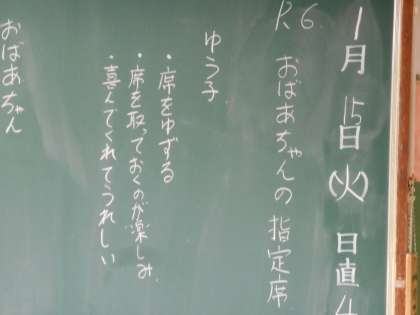 1月15日(火) 日直
P.6. おばあちゃんの指定席
ゆう子
・席をゆずる
・席を取っておくのが楽しみ
・喜んでくれてうれしい
おばあちゃん